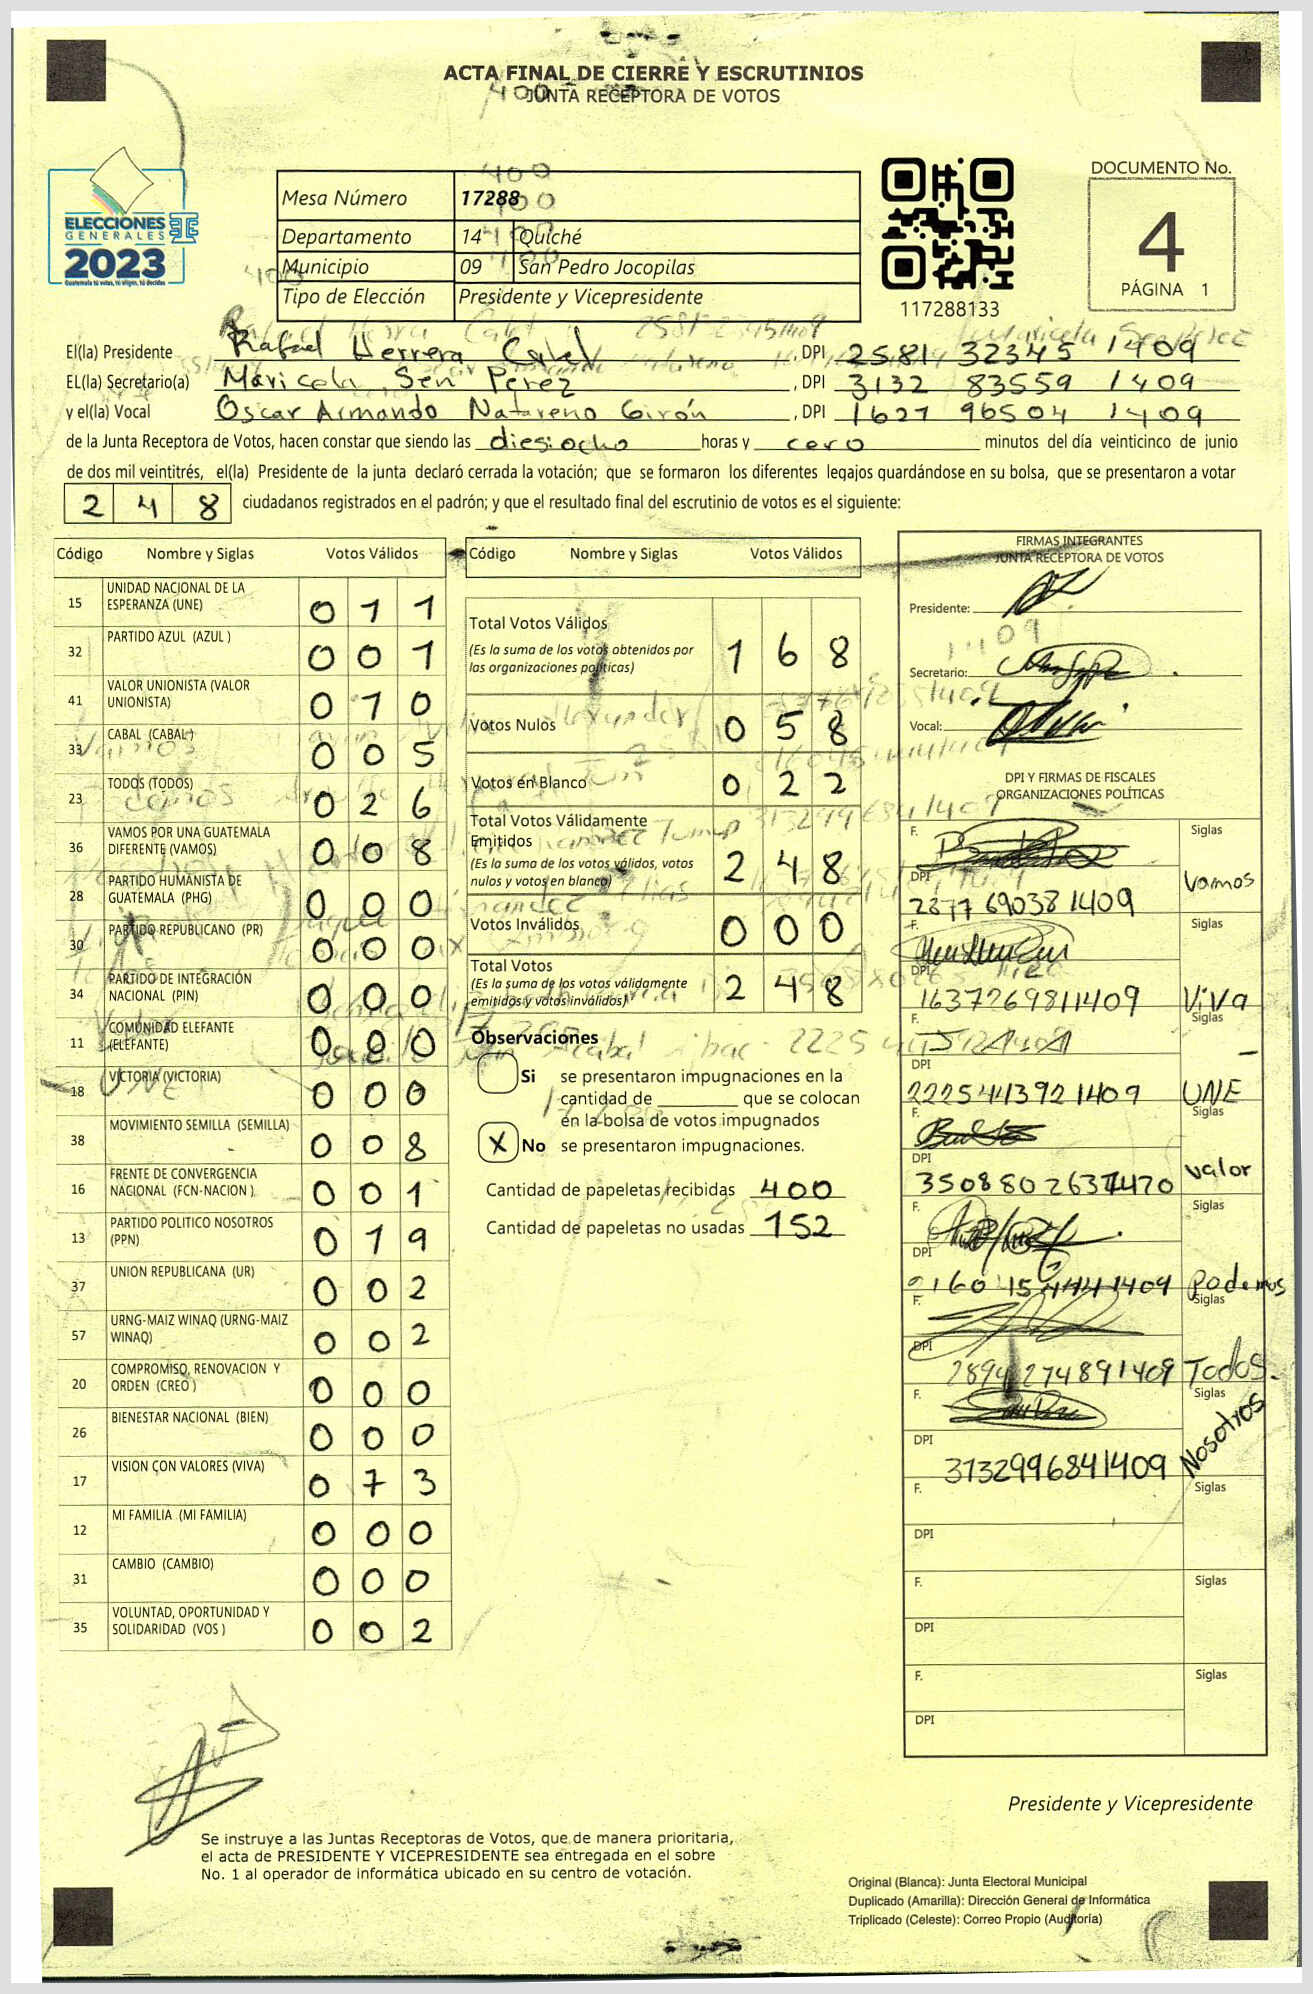 ACTA FINAL DE CIERRE Y ESCRUTINIOS
JUNTA RECEPTORA DE VOTOS
400
400
400
400
400
400
ELECCIONES
GENERALES
2023
Guatemala tú votas, tú eliges, tú decides
Mesa Número 17288
Departamento 14 Quiché
Municipio 09 San Pedro Jocopilas
Tipo de Elección Presidente y Vicepresidente
117288133
DOCUMENTO No.
4
PÁGINA 1
El(la) Presidente Rafael Herrera Cabal, DPI 2581 32345 1409
EL(la) Secretario(a) Maricela Sen Perez, DPI 3132 83559 1409
y el(la) Vocal Oscar Armando Natareno Girón, DPI 1627 96504 1409
de la Junta Receptora de Votos, hacen constar que siendo las diesiocho horas y cero minutos del día veinticinco de junio
de dos mil veintitrés, el(la) Presidente de la junta declaró cerrada la votación; que se formaron los diferentes legajos guardándose en su bolsa, que se presentaron a votar
248 ciudadanos registrados en el padrón; y que el resultado final del escrutinio de votos es el siguiente:
Código Nombre y Siglas Votos Válidos
15 UNIDAD NACIONAL DE LA ESPERANZA (UNE) 011
32 PARTIDO AZUL (AZUL ) 001
41 VALOR UNIONISTA (VALOR UNIONISTA) 010
33 CABAL (CABAL ) 005
23 TODOS (TODOS) 026
36 VAMOS POR UNA GUATEMALA DIFERENTE (VAMOS) 008
28 PARTIDO HUMANISTA DE GUATEMALA (PHG) 000
30 PARTIDO REPUBLICANO (PR) 000
34 PARTIDO DE INTEGRACIÓN NACIONAL (PIN) 000
11 COMUNIDAD ELEFANTE (ELEFANTE) 000
18 VICTORIA (VICTORIA) 000
38 MOVIMIENTO SEMILLA (SEMILLA) 008
16 FRENTE DE CONVERGENCIA NACIONAL (FCN-NACION ) 001
13 PARTIDO POLITICO NOSOTROS (PPN) 019
37 UNION REPUBLICANA (UR) 002
57 URNG-MAIZ WINAQ (URNG-MAIZ WINAQ) 002
20 COMPROMISO, RENOVACION Y ORDEN (CREO ) 000
26 BIENESTAR NACIONAL (BIEN) 000
17 VISION CON VALORES (VIVA) 073
12 MI FAMILIA (MI FAMILIA) 000
31 CAMBIO (CAMBIO) 000
35 VOLUNTAD, OPORTUNIDAD Y SOLIDARIDAD (VOS ) 002
Código Nombre y Siglas Votos Válidos
Total Votos Válidos 168
(Es la suma de los votos obtenidos por
las organizaciones políticas)
Votos Nulos 058
Votos en Blanco 022
Total Votos Válidamente
Emitidos 248
(Es la suma de los votos válidos, votos
nulos y votos en blanco)
Votos Inválidos 000
Total Votos 248
(Es la suma de los votos válidamente
emitidos y votos inválidos)
Observaciones
Si se presentaron impugnaciones en la
cantidad de ________ que se colocan
en la bolsa de votos impugnados
X No se presentaron impugnaciones.
Cantidad de papeletas recibidas 400
Cantidad de papeletas no usadas 152
FIRMAS INTEGRANTES
JUNTA RECEPTORA DE VOTOS
Presidente:
Secretario:
Vocal:
DPI Y FIRMAS DE FISCALES
ORGANIZACIONES POLÍTICAS
F. Siglas
DPI 2877 69038 1409 Vamos
F. Siglas
DPI 1637269811409 ViVa
F. Siglas
DPI 2225441392 1409 UNE
F. Siglas
DPI valor
F. Siglas
DPI Podemos
F. Siglas
DPI 2894274891409 Todos.
F. Siglas
DPI 3132996841409 Nosotros
F. Siglas
DPI
F. Siglas
DPI
F. Siglas
DPI
Presidente y Vicepresidente
Se instruye a las Juntas Receptoras de Votos, que de manera prioritaria,
el acta de PRESIDENTE Y VICEPRESIDENTE sea entregada en el sobre
No. 1 al operador de informática ubicado en su centro de votación.
Original (Blanca): Junta Electoral Municipal
Duplicado (Amarilla): Dirección General de Informática
Triplicado (Celeste): Correo Propio (Auditoría)